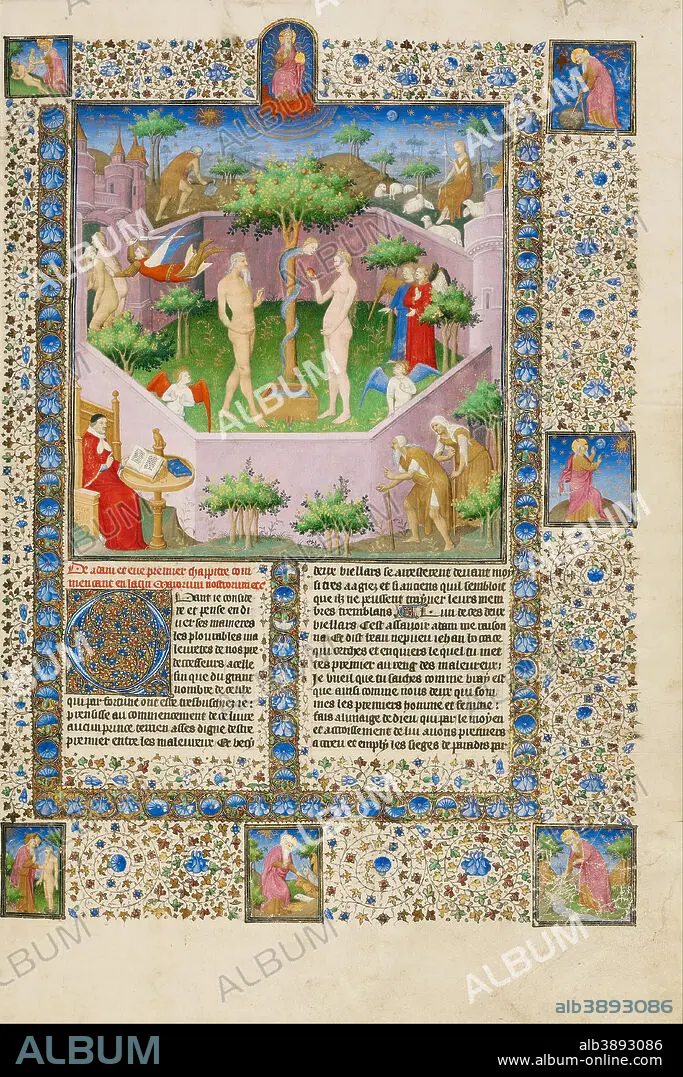 De adam et eve premier chappitre com
mencant en latin Maiorum nostrorum etc
Quant ie conside
re et pense en di
verses manieres
les plourables ma
leuretes de nos pre
decesseurs a celle
fin que du grant
nombre de ceulx
qui par fortune ont este tresbuschiez ie
prenisse au commencement de ce livre
aucun prince terrien assez digne destre
premier entre les maleureux Et vecy
deux viellars se aresterent devant moy
si tres aagiez et si anciens quil sembloit
que ilz ne peussent trayner leurs mem
bres tremblans un de ces deux
viellars cest assavoir adam me raison
na et dist beau nepveu iehan bocace
cerches et enquiers le quel tu met
tes premier au reng des maleureux
ie vueil que tu saches comme vray est
que ainsi comme nous deux qui som
mes les premiers homme et femme
fais a limaige de dieu qui par le moyen
et accroissement de lui avons premiers
acreu et emply les sieges de paradis par
ALBUM
alb3893086
ALBUM
alb3893086
www.album-online.com